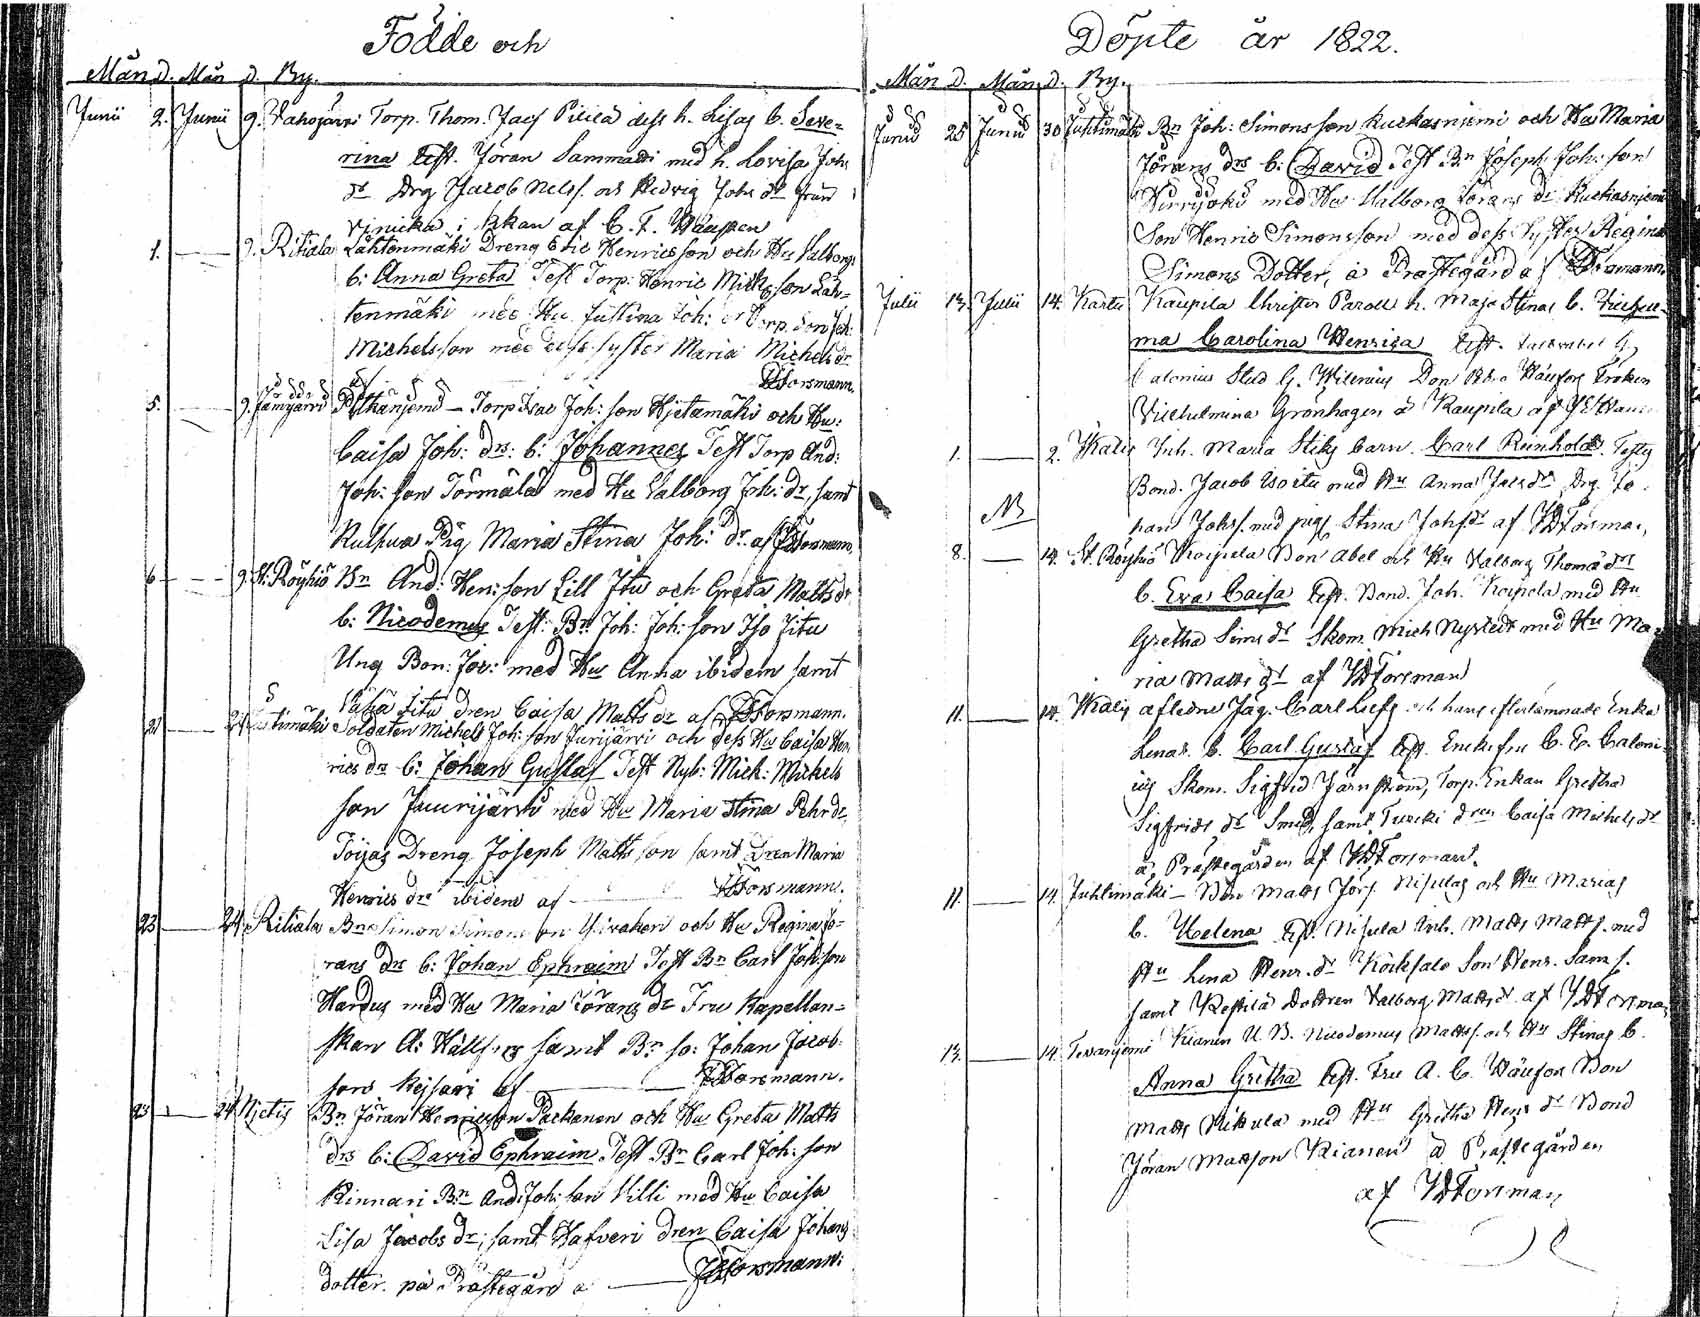 Födde och
Mån d. Mån d. By.
Junii 2. Junii 9. Vahojärvi Torp. Thom. Jacs Piililä dess h. Lisas b. Seve-
rina Test. Jöran Sammatti med h. Lovisa Joh:
dr Drg Jacob Nelss. och Hedvig Johs dr från
i af C. F. Wäuson
1. — 9. Ritiala Lähtenmäki Dreng Eric Henricsson och Hu Valborgs
b: Anna Greta Test Torp: Henric Mickesson Läh-
tenmäki med Hu Justina Joh: dr Torp. Son Joh:
Michelsson med dess syster Maria Michels dr
Forsmann.
5. — 9. Jämijärvi Pitkäniemi – Torp Isac Joh: son Hjetamäki och Hu:
Caisa Joh: drs: b: Johannes Test Torp And:
Joh: son Törmälä med Hu Valborg Joh: dr, samt
Pig Maria Stina Joh: dr af Forsmann,
6 — 9. St: Röyhiö Bn And: Hen: son Lill Jitu och Greta Matts dr
b: Nicodemus Test: Bn Joh: Joh: son Iso Jitu
Ung Bon: Jör: med Hu Anna ibidem samt
Vähä Jitu dren Caisa Matts dr af Forsmann.
21 — 24 Justimäki Soldaten Michel Joh: son Jurijärvi och dess Hu Caisa Hen-
rics drs b: Johan Gustaf Test Nyb: Mick: Mickels
son Juurijärvi med Hu Maria Stina Pehr dr,
Töijas Dreng Joseph Matts son samt Dren Maria
Henrics dr ibidem af — Forsmann.
23 — 24. Ritiala Bn Simon Simonsson och Hu Regina Jö-
rans drs b: Johan Ephraim Test Bn Carl Joh: son
Hardus med Hu Maria Jörans dr Fru Kapellan-
skan A: samt Bn so: Johan Jacob-
sons Keisari af — Forsmann.
23 — 24. Njetis Bn Jöran Henricsson Packanen och Hu Greta Matts
drs b: David Ephraim Test Bn Carl Joh: son
Kinnari Bn And: Joh: son Villi med Hu Caisa
Lisa Jacobs dr; samt Hafveri dren Caisa Johans
dotter. på Prästegård a — Forsmann:
Döpte år 1822.
Mån D. Mån d. By.
Junii 25 Junii 30 Justimäki Bn Joh: Simonsson Kuckasnjemi och Hu Maria
Jörans drs b: David Test Bn Joseph Joh: son
Virrijoki med Hu Valborg Jörans dr Kuckasnjemi
Son Henric Simonsson med dess Syster Regina
Simons Dotter, å Prästegård af Forsmann.
Julii 13. Julii 14. Kartu Kaupila Christer Paroll h. Maja Stinas b. Vilhel-
ma Carolina Henrica Test.
Calonius Stud G. Wilenius Don Wäuson Fröken
Vilhelmina Grönhagen å Kaupila af
1. — 2. Inh. Maria Stiks barn Carl Reinhold. Test
Bond. Jacob med Hu Anna Jacs dr, Drg Jo-
NB han Johss. med pig. Stina Johs dr af Forsman,
8. — 14. St. Röyhiö Koipila Bon Abel och Hu Valborg Thomæ drs
b. Eva Caisa Test. Bond. Joh. Koipila med Hu
Gretha Sims dr Skom. Mich Nystedt med Hu Ma-
ria Matts dr af Forsman
11. — 14. afledne Jäg. Carl och hans efterlämnade Enka
Lenas. b. Carl Gustaf Test. Enkefru C. E. Caloni-
us Skom. Sigfrid Järnström, Torp. Enkan Gretha
Sigfrids dr Smeds, samt dren Caisa Michels dr
å Prästegården af Forsman.
11. — 14. Juhlimäki – Bon Matts Jörs. Nisulas och Hu Marias
b. Helena Test. Nisula Inh. Matts Matts. med
Hu Lena Henr. dr Köcksalo Son Henr. Sams.
samt Dottren Valborg Matts dr. af Forsman
13. — 14. Kianen U. B. Nicodemus Matts. och Hu Stinas b.
Anna Gretha Test. Fru A. C. Wäuson Bon
Matts Nikula med Hu Gretha Henr dr Bond
Jöran Matsson Kianen å Prästegården
af Forsman